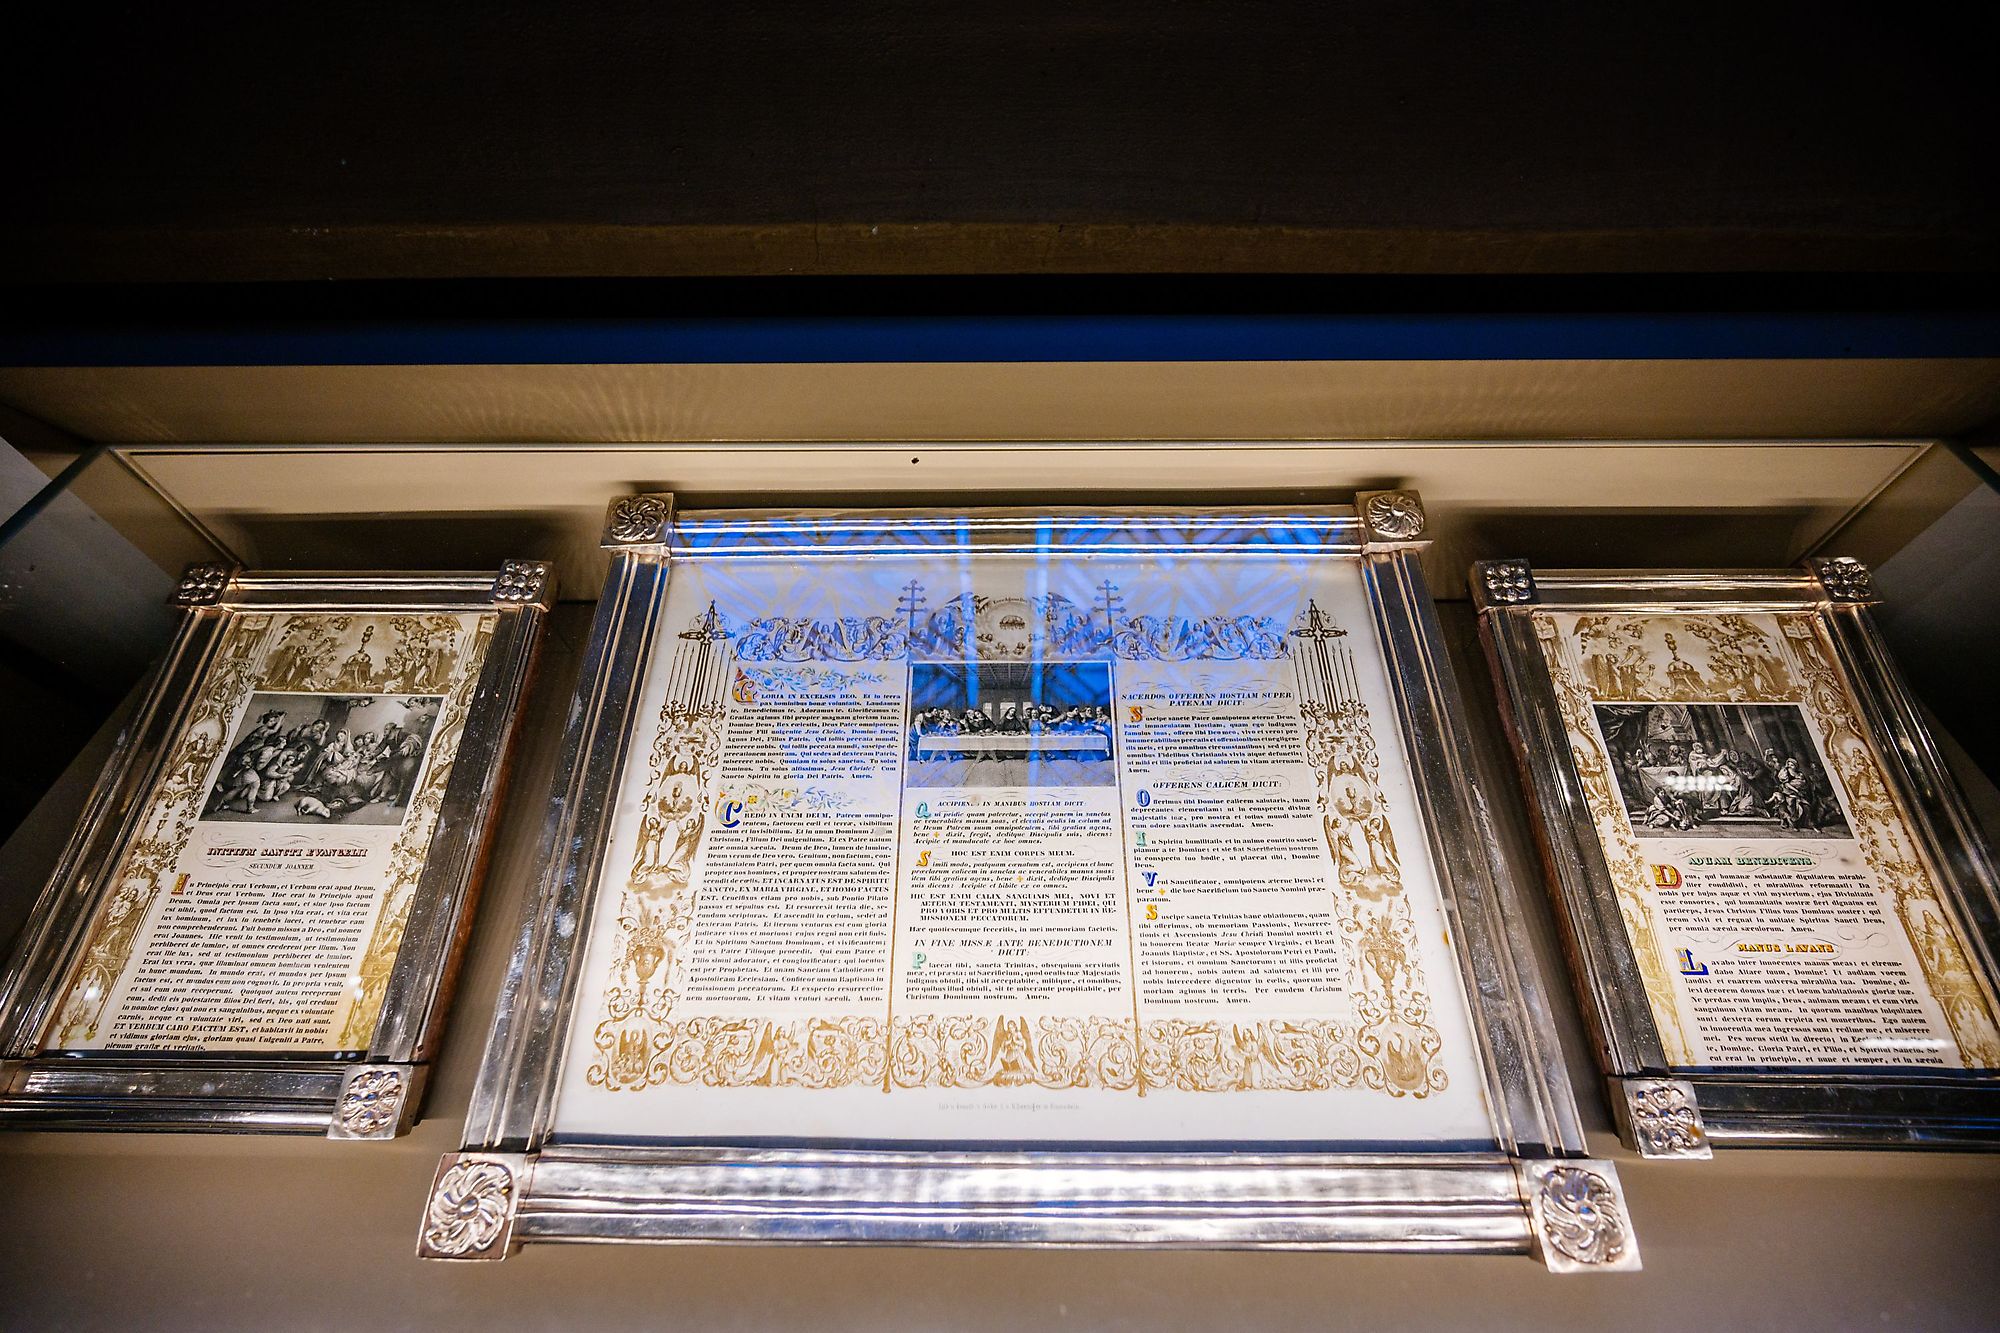 INITIUM SANCTI EVANGELII
SECUNDUM JOANNEM
In Principio erat Verbum, et Verbum erat apud Deum,
et Deus erat Verbum. Hoc erat in Principio apud
Deum. Omnia per Ipsum facta sunt, et sine ipso factum
est nihil, quod factum est. In ipso vita erat, et vita erat
lux hominum, et lux in tenebris lucet, et tenebræ eam
non comprehenderunt. Fuit homo missus a Deo, cui nomen
erat Joannes. Hic venit in testimonium, ut testimonium
perhiberet de lumine, ut omnes crederent per illum. Non
erat ille lux, sed ut testimonium perhiberet de lumine.
Erat lux vera, quæ illuminat omnem hominem venientem
in hunc mundum. In mundo erat, et mundus per Ipsum
factus est, et mundus eum non cognovit. In propria venit,
et sui eum non receperunt. Quotquot autem receperunt
eum, dedit eis potestatem filios Dei fieri, his, qui credunt
in nomine ejus: qui non ex sanguinibus, neque ex voluntate
carnis, neque ex voluntate viri, sed ex Deo nati sunt.
ET VERBUM CARO FACTUM EST, et habitavit in nobis:
et vidimus gloriam ejus, gloriam quasi Unigeniti a Patre,
plenum gratiæ et veritatis.
GLORIA IN EXCELSIS DEO. Et in terra
pax hominibus bonæ voluntatis. Laudamus
te. Benedicimus te. Adoramus te. Glorificamus te.
Gratias agimus tibi propter magnam gloriam tuam.
Domine Deus, Rex cœlestis, Deus Pater omnipotens.
Domine Fili unigenite Jesu Christe. Domine Deus,
Agnus Dei, Filius Patris. Qui tollis peccata mundi,
miserere nobis. Qui tollis peccata mundi, suscipe de-
precationem nostram. Qui sedes ad dexteram Patris,
miserere nobis. Quoniam tu solus sanctus. Tu solus
Dominus. Tu solus altissimus, Jesu Christe! Cum
Sancto Spiritu in gloria Dei Patris. Amen.
CREDO IN UNUM DEUM, Patrem omnipo-
tentem, factorem cœli et terræ, visibilium
omnium et invisibilium. Et in unum Dominum
Christum, Filium Dei unigenitum. Et ex Patre natum
ante omnia sæcula. Deum de Deo, lumen de lumine,
Deum verum de Deo vero. Genitum, non factum, con-
substantialem Patri, per quem omnia facta sunt. Qui
propter nos homines, et propter nostram salutem de-
scendit de cœlis. ET INCARNATUS EST DE SPIRITU
SANCTO, EX MARIA VIRGINE, ET HOMO FACTUS
EST. Crucifixus etiam pro nobis, sub Pontio Pilato
passus et sepultus est. Et resurrexit tertia die, se-
cundum scripturas. Et ascendit in cœlum, sedet ad
dexteram Patris. Et iterum venturus est cum gloria
judicare vivos et mortuos: cujus regni non erit finis.
Et in Spiritum Sanctum Dominum, et vivificantem:
qui ex Patre Filioque procedit. Qui cum Patre et
Filio simul adoratur, et conglorificatur: qui locutus
est per Prophetas. Et unam Sanctam Catholicam et
Apostolicam Ecclesiam. Confiteor unum Baptisma in
remissionem peccatorum. Et expecto resurrectio-
nem mortuorum. Et vitam venturi sæculi. Amen.
ACCIPIENS IN MANIBUS HOSTIAM DICIT:
Qui pridie quam pateretur, accepit panem in sanctas
ac venerabiles manus suas, et elevatis oculis in cœlum ad
te Deum Patrem suum omnipotentem, tibi gratias agens,
bene + dixit, fregit, deditque Discipulis suis, dicens:
Accipite et manducate ex hoc omnes.
HOC EST ENIM CORPUS MEUM.
Simili modo, postquam cœnatum est, accipiens et hunc
præclarum calicem in sanctas ac venerabiles manus suas:
item tibi gratias agens, bene + dixit, deditque Discipulis
suis dicens: Accipite et bibite ex eo omnes.
HIC EST ENIM CALIX SANGUINIS MEI, NOVI ET
AETERNI TESTAMENTI, MYSTERIUM FIDEI, QUI
PRO VOBIS ET PRO MULTIS EFFUNDETUR IN RE-
MISSIONEM PECCATORUM.
Hæc quotiescumque feceritis, in mei memoriam facietis.
IN FINE MISSÆ ANTE BENEDICTIONEM
DICIT:
Placeat tibi, sancta Trinitas, obsequium servitutis
meæ, et præsta: ut Sacrificium, quod oculis tuæ Majestatis
indignus obtuli, tibi sit acceptabile, mihique, et omnibus,
pro quibus illud obtuli, sit te miserante propitiabile, per
Christum Dominum nostrum. Amen.
SACERDOS OFFERENS HOSTIAM SUPER
PATENAM DICIT:
Suscipe sancte Pater omnipotens æterne Deus,
hanc immaculatam Hostiam, quam ego indignus
famulus tuus, offero tibi Deo meo, vivo et vero: pro
innumerabilibus peccatis et offensionibus et negligen-
tiis meis, et pro omnibus circumstantibus; sed et pro
omnibus Fidelibus Christianis vivis atque defunctis:
ut mihi et illis proficiat ad salutem in vitam æternam.
Amen.
OFFERENS CALICEM DICIT:
Offerimus tibi Domine calicem salutaris, tuam
deprecantes clementiam: ut in conspectu divinæ
majestatis tuæ, pro nostra et totius mundi salute
cum odore suavitatis ascendat. Amen.
In Spiritu humilitatis et in animo contrito susci-
piamur a te Domine: et sic fiat Sacrificium nostrum
in conspectu tuo hodie, ut placeat tibi, Domine
Deus.
Veni Sanctificator, omnipotens æterne Deus! et
bene + dic hoc Sacrificium tuo Sancto Nomini præ-
paratum.
Suscipe sancta Trinitas hanc oblationem, quam
tibi offerimus, ob memoriam Passionis, Resurrec-
tionis et Ascensionis Jesu Christi Domini nostri: et
in honorem Beatæ Mariæ semper Virginis, et Beati
Joannis Baptistæ, et SS. Apostolorum Petri et Pauli,
et istorum, et omnium Sanctorum: ut illis proficiat
ad honorem, nobis autem ad salutem: et illi pro
nobis intercedere dignentur in cœlis, quorum me-
moriam agimus in terris. Per eundem Christum
Dominum nostrum. Amen.
AQUAM BENEDICENS.
Deus, qui humanæ substantiæ dignitatem mirabi-
liter condidisti, et mirabilius reformasti: Da
nobis per hujus aquæ et vini mysterium, ejus Divinitatis
esse consortes, qui humanitatis nostræ fieri dignatus est
particeps, Jesus Christus Filius tuus Dominus noster: qui
tecum vivit et regnat in unitate Spiritus Sancti Deus,
per omnia sæcula sæculorum. Amen.
MANUS LAVANS
Lavabo inter innocentes manus meas: et circum-
dabo Altare tuum, Domine! Ut audiam vocem
laudis: et enarrem universa mirabilia tua. Domine, di-
lexi decorem domus tuæ: et locum habitationis gloriæ tuæ.
Ne perdas cum impiis, Deus, animam meam: et cum viris
sanguinum vitam meam. In quorum manibus iniquitates
sunt: dextera eorum repleta est muneribus. Ego autem
in innocentia mea ingressus sum: redime me, et miserere
mei. Pes meus stetit in directo; in
te, Domine. Gloria Patri, et Filio, et Spiritui Sancto. Si-
cut erat in principio, et nunc et semper, et in sæcula
sæculorum. Amen.